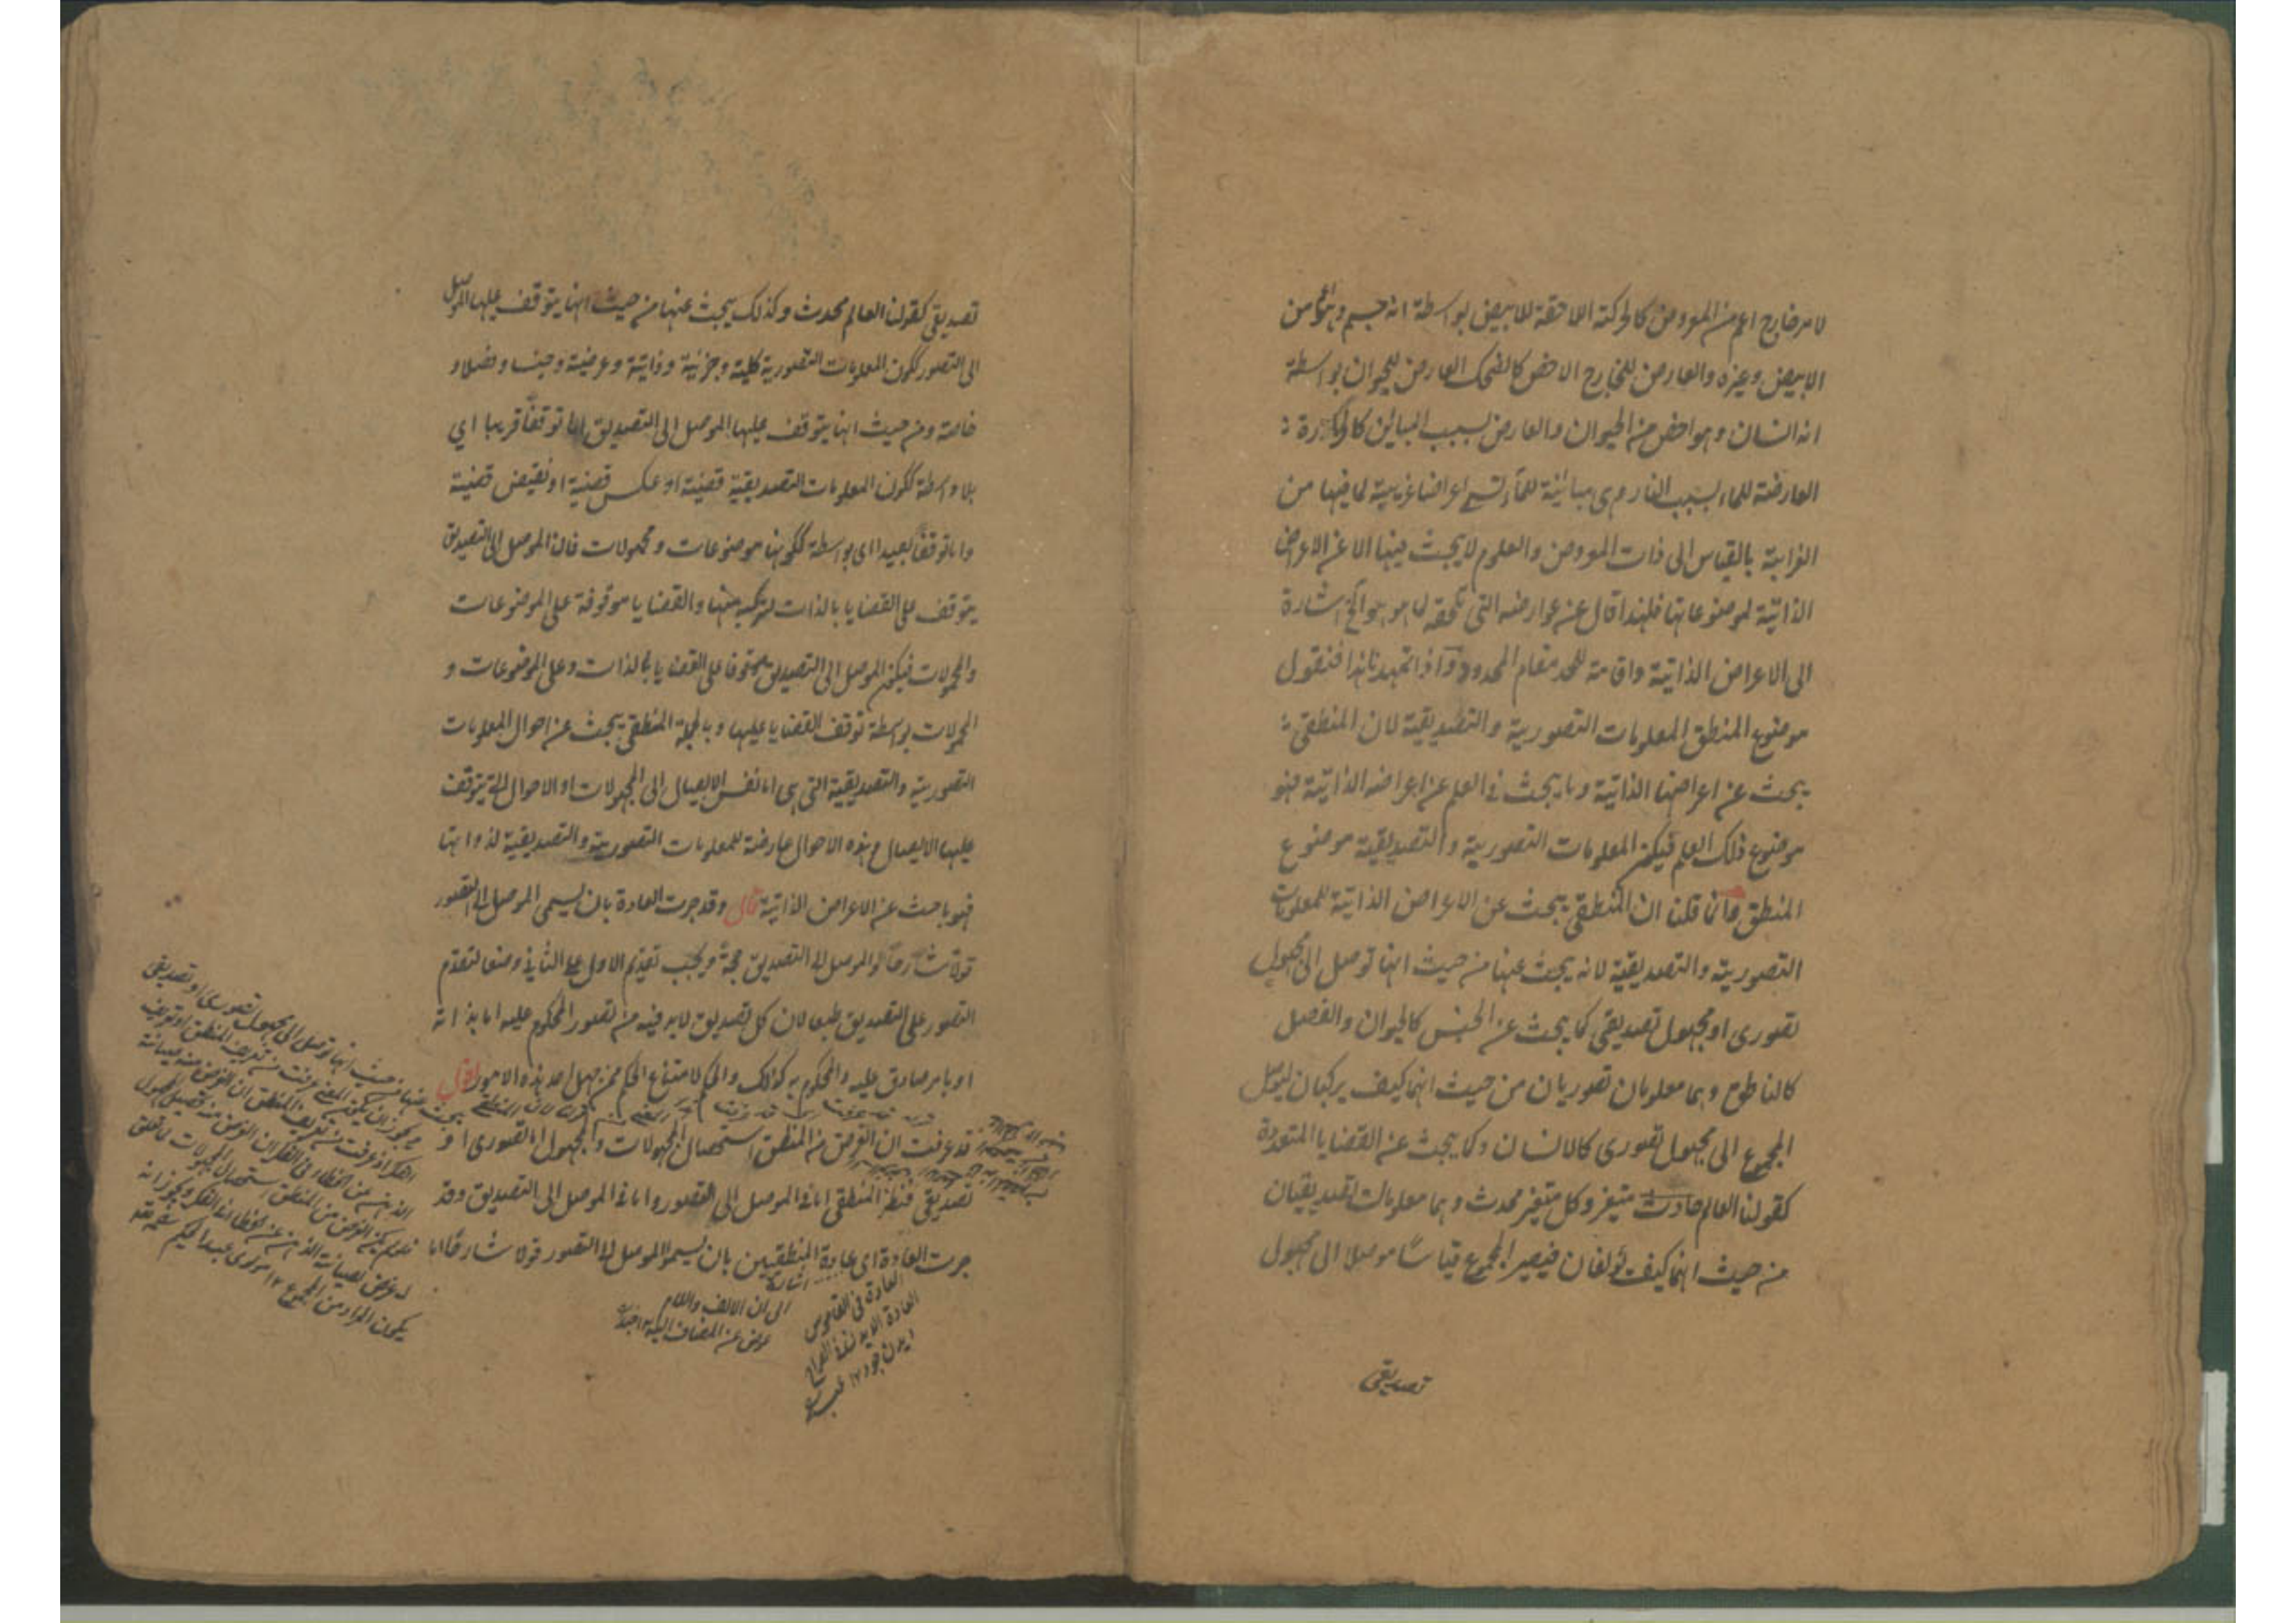 لامر خارج اعم من المعروض كالحركة اللاحقة للابيض بواسطة انه جسم وهو اعم من
الابيض وغيره والعارض للخارج الاخص كالضحك العارض للحيوان بواسطة
انه انسان وهو اخص من الحيوان والعارض بسبب المباين كالحرارة
العارضة للماء بسبب النار وهى مباينة للماء تسمى اعراضا غريبة لما فيها من
الغرابة بالقياس الى ذات المعروض والعلوم لا يبحث فيها الا عن الاعراض
الذاتية لموضوعاتها فلهذا قال عن عوارضه التى تلحقه لما هو هو الخ اشارة
الى الاعراض الذاتية واقامة للحد مقام المحدود واذا تمهد هذا فنقول
موضوع المنطق المعلومات التصورية والتصديقية لان المنطقى
يبحث عن اعراضها الذاتية وما يبحث فى العلم عن اعراضه الذاتية فهو
موضوع ذلك العلم فيكون المعلومات التصورية والتصديقية موضوع
المنطق وانما قلنا ان المنطقى يبحث عن الاعراض الذاتية للمعلومات
التصورية والتصديقية لانه يبحث عنها من حيث انها توصل الى مجهول
تصورى او مجهول تصديقى كما يبحث عن الجنس كالحيوان والفصل
كالناطق وهما معلومان تصوريان من حيث انهما كيف يركبان ليوصل
المجموع الى مجهول تصورى كالانسان وكما يبحث عن القضايا المتعددة
كقولنا العالم حادث متغير وكل متغير محدث وهما معلومان تصديقيان
من حيث انهما كيف يؤلفان فيصير المجموع قياسا موصلا الى مجهول
تصديقى
تصديقى كقولنا العالم محدث وكذلك يبحث عنها من حيث انها يتوقف عليها الموصل
الى التصور ككون المعلومات التصورية كلية وجزئية وذاتية وعرضية وجنسا وفصلا و
خاصة ومن حيث انها يتوقف عليها الموصل الى التصديق اما توقفا قريبا اي
بلا واسطة ككون المعلومات التصديقية قضية او عكس قضية او نقيض قضية
واما توقفا بعيدا اى بواسطة ككونها موضوعات ومحمولات فان الموصل الى التصديق
يتوقف على القضايا بالذات لتركبه منها والقضايا موقوفة على الموضوعات
والمحمولات فيكون الموصل الى التصديق موقوفا على القضايا بالذات وعلى الموضوعات و
المحمولات بواسطة توقف القضايا عليها وبالجملة المنطقى يبحث عن احوال المعلومات
التصورية والتصديقية التى هى اما نفس الايصال الى المجهولات او الاحوال التى يتوقف
عليها الايصال وهذه الاحوال عارضة للمعلومات التصورية والتصديقية لذواتها
فهو باحث عن الاعراض الذاتية قال وقد جرت العادة بان يسمى الموصل الى التصور
قولا شارحا والموصل الى التصديق حجة ويجب تقديم الاول على الثانى وضعا لتقدم
التصور على التصديق طبعا لان كل تصديق لابد فيه من تصور المحكوم عليه اما بذاته
او بامر صادق عليه والمحكوم به كذلك والحكم لامتناع الحكم ممن جهل احد هذه الامور اقول
قد عرفت ان الغرض من المنطق استحصال المجهولات والمجهول اما تصورى او
تصديقى فنظر المنطقى اما فى الموصل الى التصور واما فى الموصل الى التصديق وقد
جرت العادة اى عادة المنطقيين بان يسموا الموصل الى التصور قولا شارحا اما
اشارة
الى ان الالف واللام
عوض عن المضاف اليه
العادة فى القاموس
يبحث عنها من حيث انها توصل الى مجهول تصورى او تصديقى